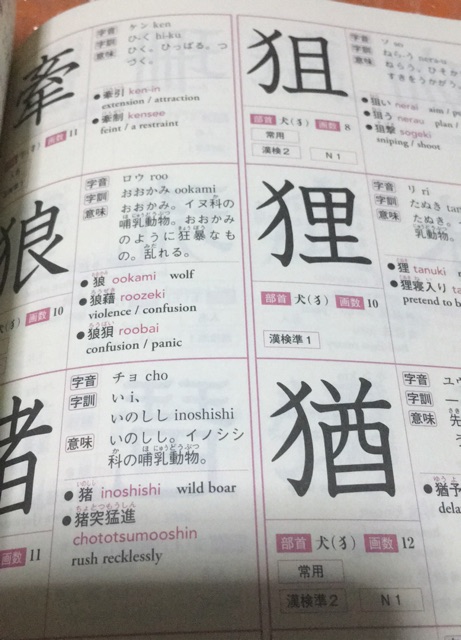 牽
字音 ケン ken
字訓 ひ-く hi-ku
意味 ひく。ひっぱる。つ
づく。
●牽引 ken-in
extension / attraction
●牽制 kensee
feint / a restraint
画数 11
狼
字音 ロウ roo
字訓 おおかみ ookami
意味 おおかみ。イヌ科の
哺乳動物。おおかみ
のように狂暴なも
の。乱れる。
●狼 ookami wolf
●狼藉 roozeki
violence / confusion
●狼狽 roobai
confusion / panic
犬(犭) 画数 10
猪
字音 チョ cho
字訓 い i、
いのしし inoshishi
意味 いのしし。イノシシ
科の哺乳動物。
●猪 inoshishi wild boar
●猪突猛進
chototsumooshin
rush recklessly
画数 11
狙
字音 ソ so
字訓 ねら-う nera-u
意味 ねらう。
すきをうかがう。
●狙い nerai aim /
●狙う nerau plan /
●狙撃 sogeki
sniping / shoot
部首 犬(犭) 画数 8
常用
漢検2 N1
狸
字音 リ ri
字訓 たぬき
意味 たぬき。
乳動物。
●狸 tanuki
●狸寝入り
pretend to b
部首 犬(犭) 画数 10
漢検準1
猶
字音
字訓
意味
●猶予
dela
部首 犬(犭) 画数 12
常用
漢検準2 N1